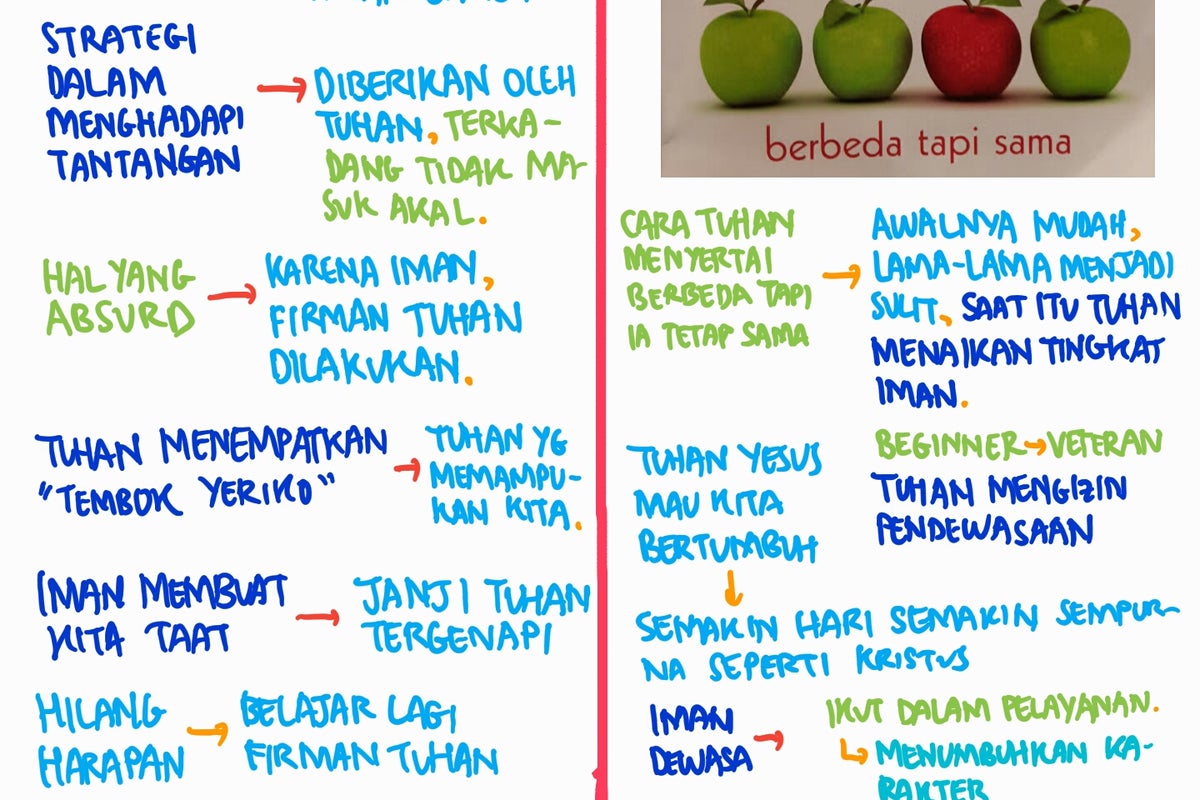 STRATEGI
DALAM
MENGHADAPI
TANTANGAN
DIBERIKAN OLEH
TUHAN, TERKA-
DANG TIDAK MA-
SUK AKAL.
HAL YANG
ABSURD
KARENA IMAN,
FIRMAN TUHAN
DILAKUKAN.
TUHAN MENEMPATKAN
"TEMBOK YERIKO"
TUHAN YG
MEMAMPU-
KAN KITA.
IMAN MEMBUAT
KITA TAAT
JANJI TUHAN
TERGENAPI
HILANG
HARAPAN
BELAJAR LAGI
FIRMAN TUHAN
berbeda tapi sama
CARA TUHAN
MENYERTAI
BERBEDA TAPI
IA TETAP SAMA
AWALNYA MUDAH,
LAMA-LAMA MENJADI
SULIT, SAAT ITU TUHAN
MENAIKAN TINGKAT
IMAN.
BEGINNER → VETERAN
TUHAN MENGIZIN
PENDEWASAAN
TUHAN YESUS
MAU KITA
BERTUMBUH
SEMAKIN HARI SEMAKIN SEMPUR-
NA SEPERTI KRISTUS
IMAN
DEWASA
IKUT DALAM PELAYANAN.
MENUMBUHKAN KA-
RAKTER